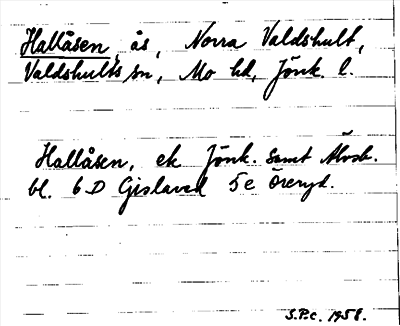 Hallåsen, ås, Norra Valdshult,
Valdshults sn, Mo hd, Jönk. l.
Hallåsen, ek Jönk. samt Älvsb.
bl. 6 D Gislaved 5e Öreryd.
S.P.c. 1958.